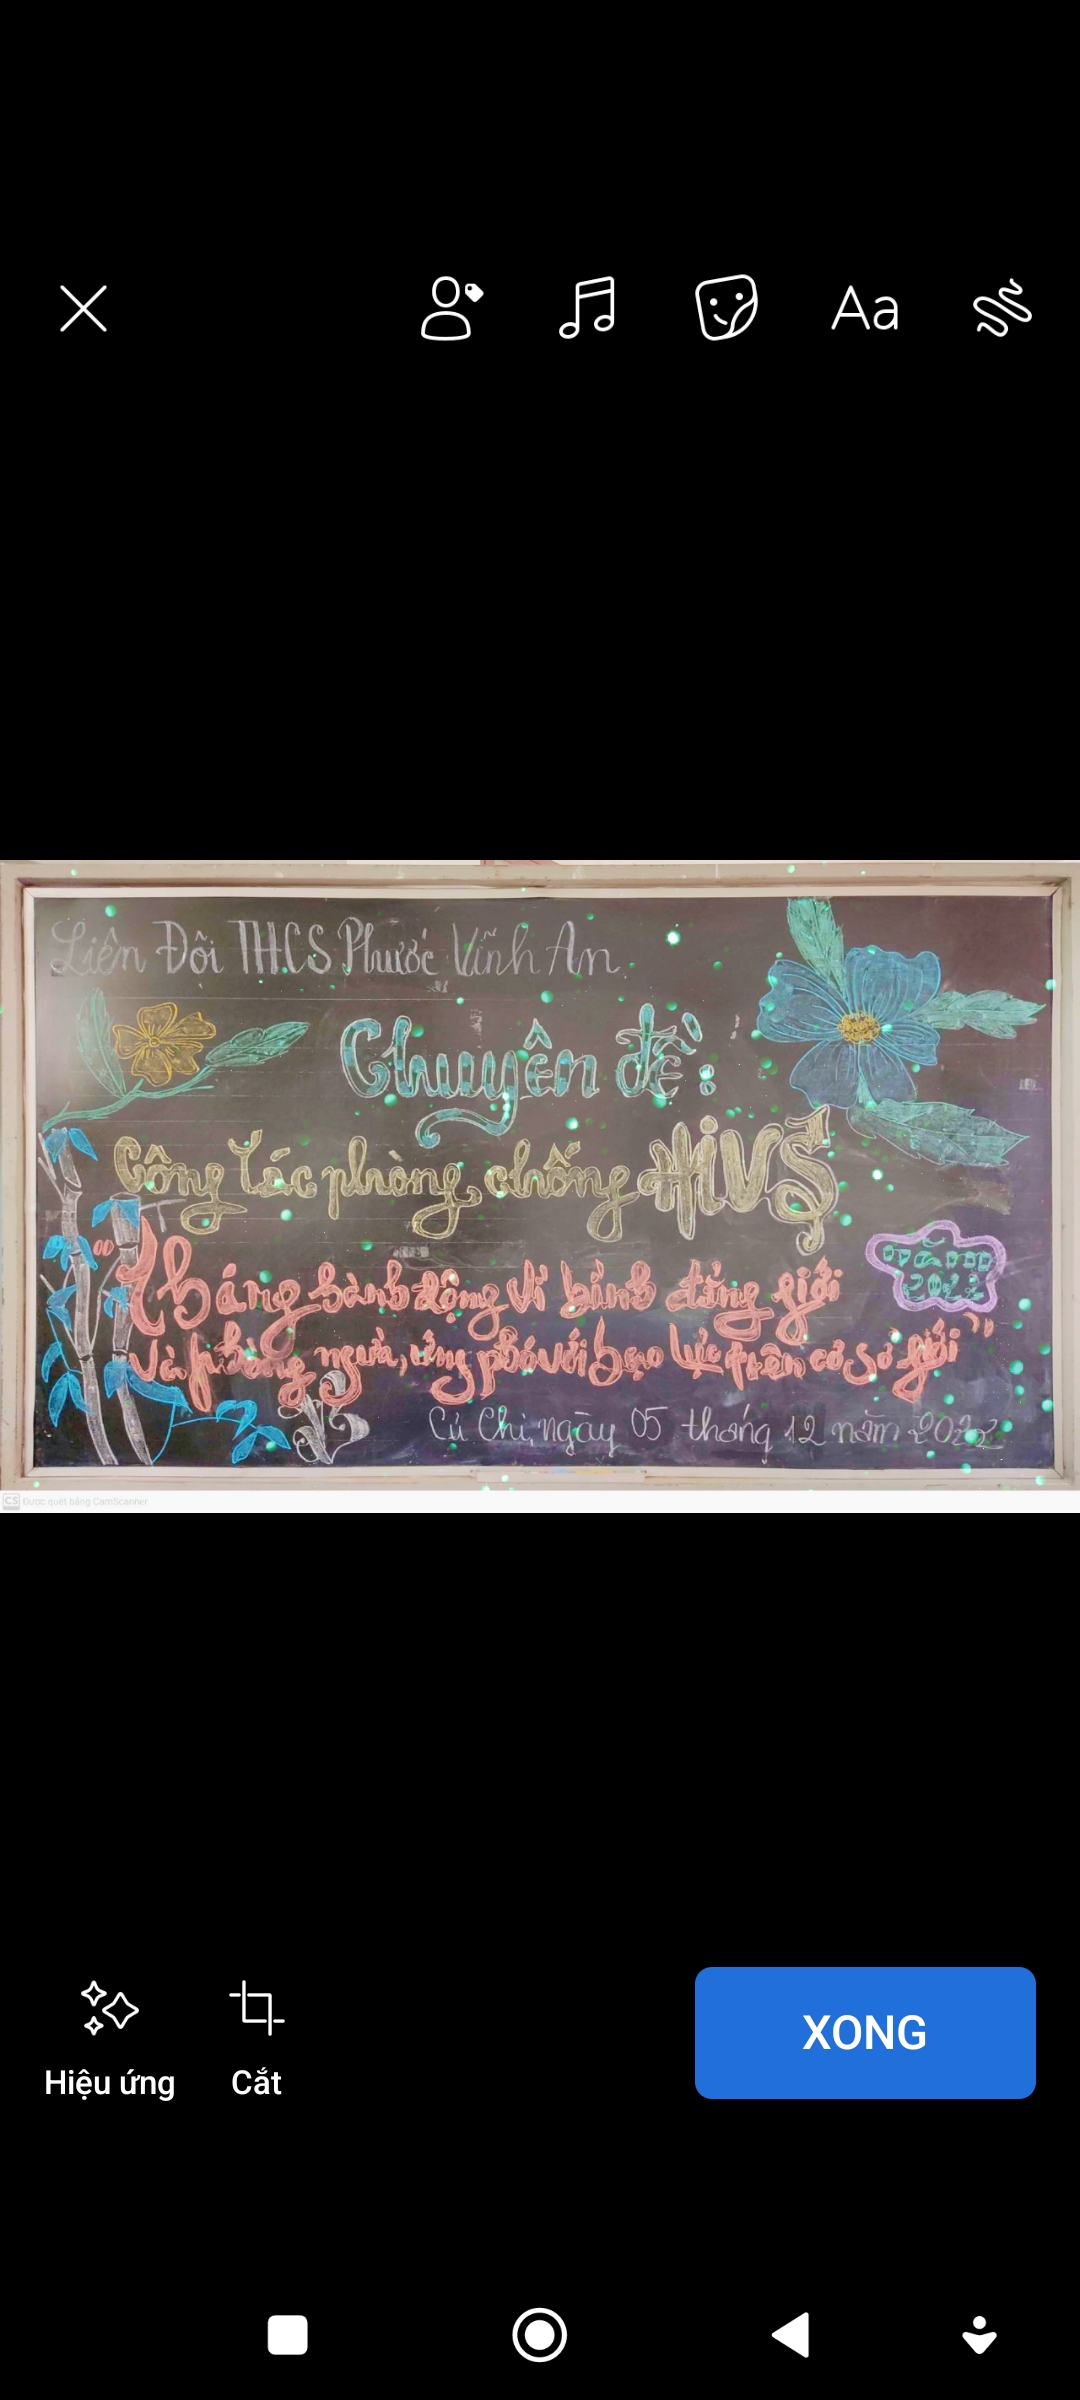 Aa
Liên Đội THCS Phước Vĩnh An
Chuyên đề:
Công tác phòng, chống HIV
"Tháng hành động vì bình đẳng giới
và phòng ngừa, ứng phó với bạo lực trên cơ sở giới"
Củ Chi, ngày 05 tháng 12 năm 2022
CS Được quét bằng CamScanner
Hiệu ứng
Cắt
XONG